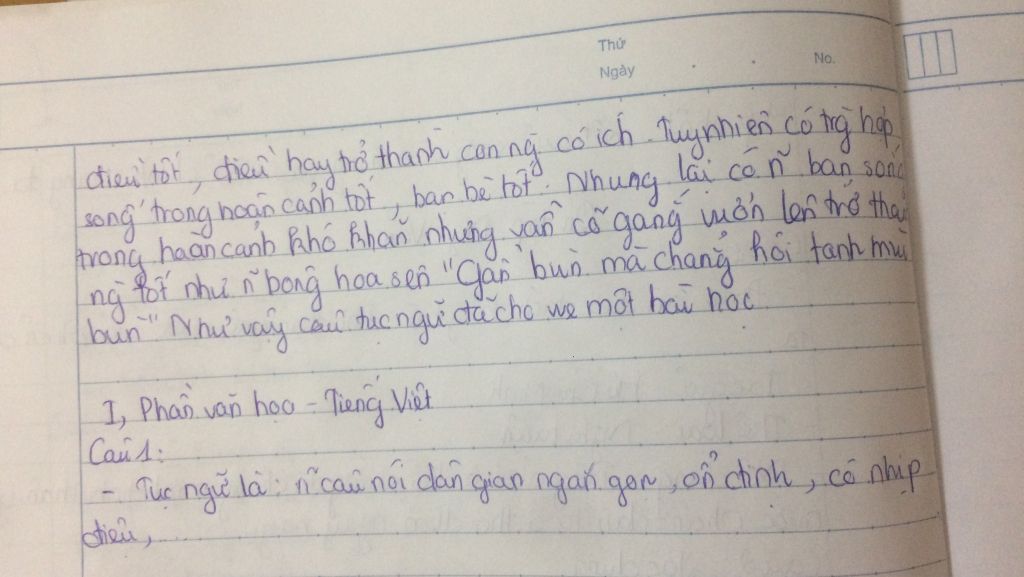 Thứ
Ngày
No.
điều tốt, điều hay trở thành con ng có ích. Tuy nhiên có trg hợp
sống trong hoàn cảnh tốt, bạn bè tốt. Nhưng lại có ~ bạn sống
trong hoàn cảnh khó khăn nhưng vẫn cố gắng vươn lên trở thà
ng tốt như ~ bông hoa sen "Gần bùn mà chẳng hôi tanh mùi
bùn" Như vậy câu tục ngữ đã cho we một bài học
I, Phần văn học - Tiếng Việt
Câu 1:
- Tục ngữ là: ~ câu nói dân gian ngắn gọn, ổn định, có nhịp
điệu,